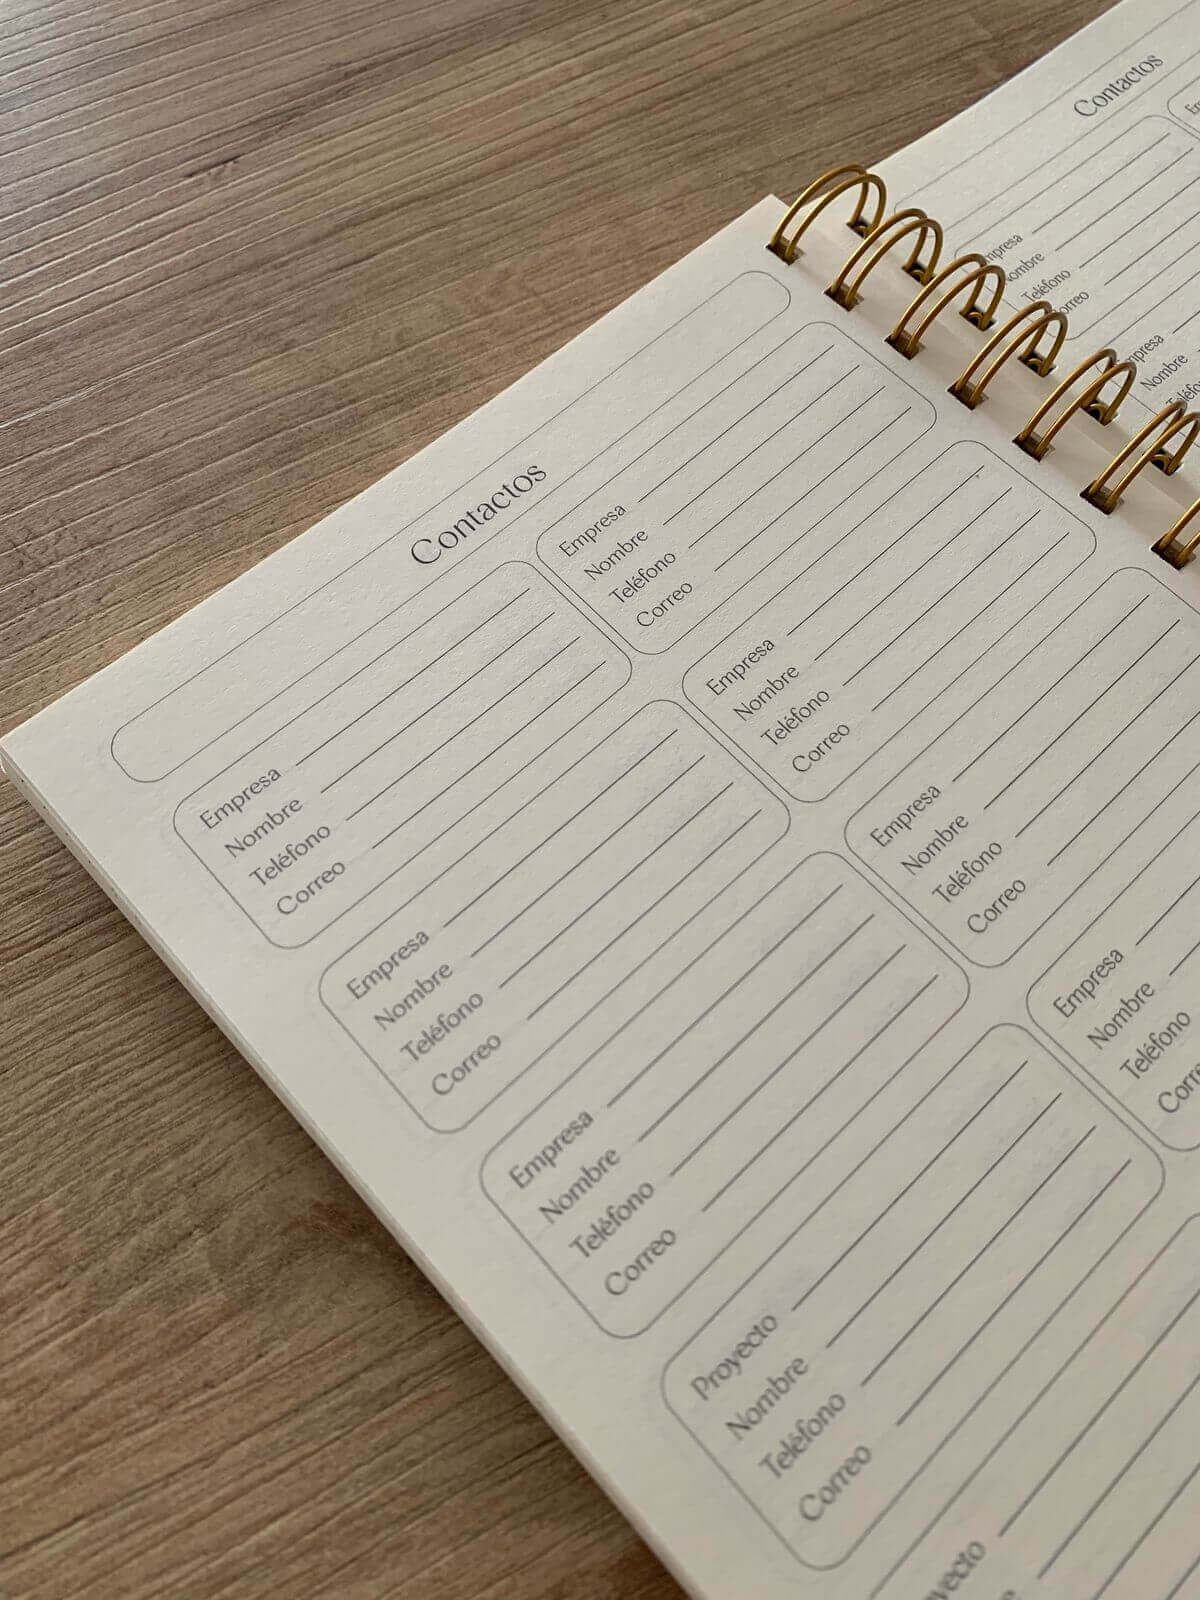 Contactos
Empresa
Nombre
Teléfono
Correo
Empresa
Nombre
Teléfono
Correo
Empresa
Nombre
Teléfono
Correo
Proyecto
Nombre
Teléfono
Correo
Empresa
Nombre
Teléfono
Correo
Empresa
Nombre
Teléfono
Correo
Empresa
Nombre
Teléfono
Correo
Empresa
Nombre
Teléfono
Contactos
Empresa
Nombre
Teléfono
Correo
Empresa
Nombre